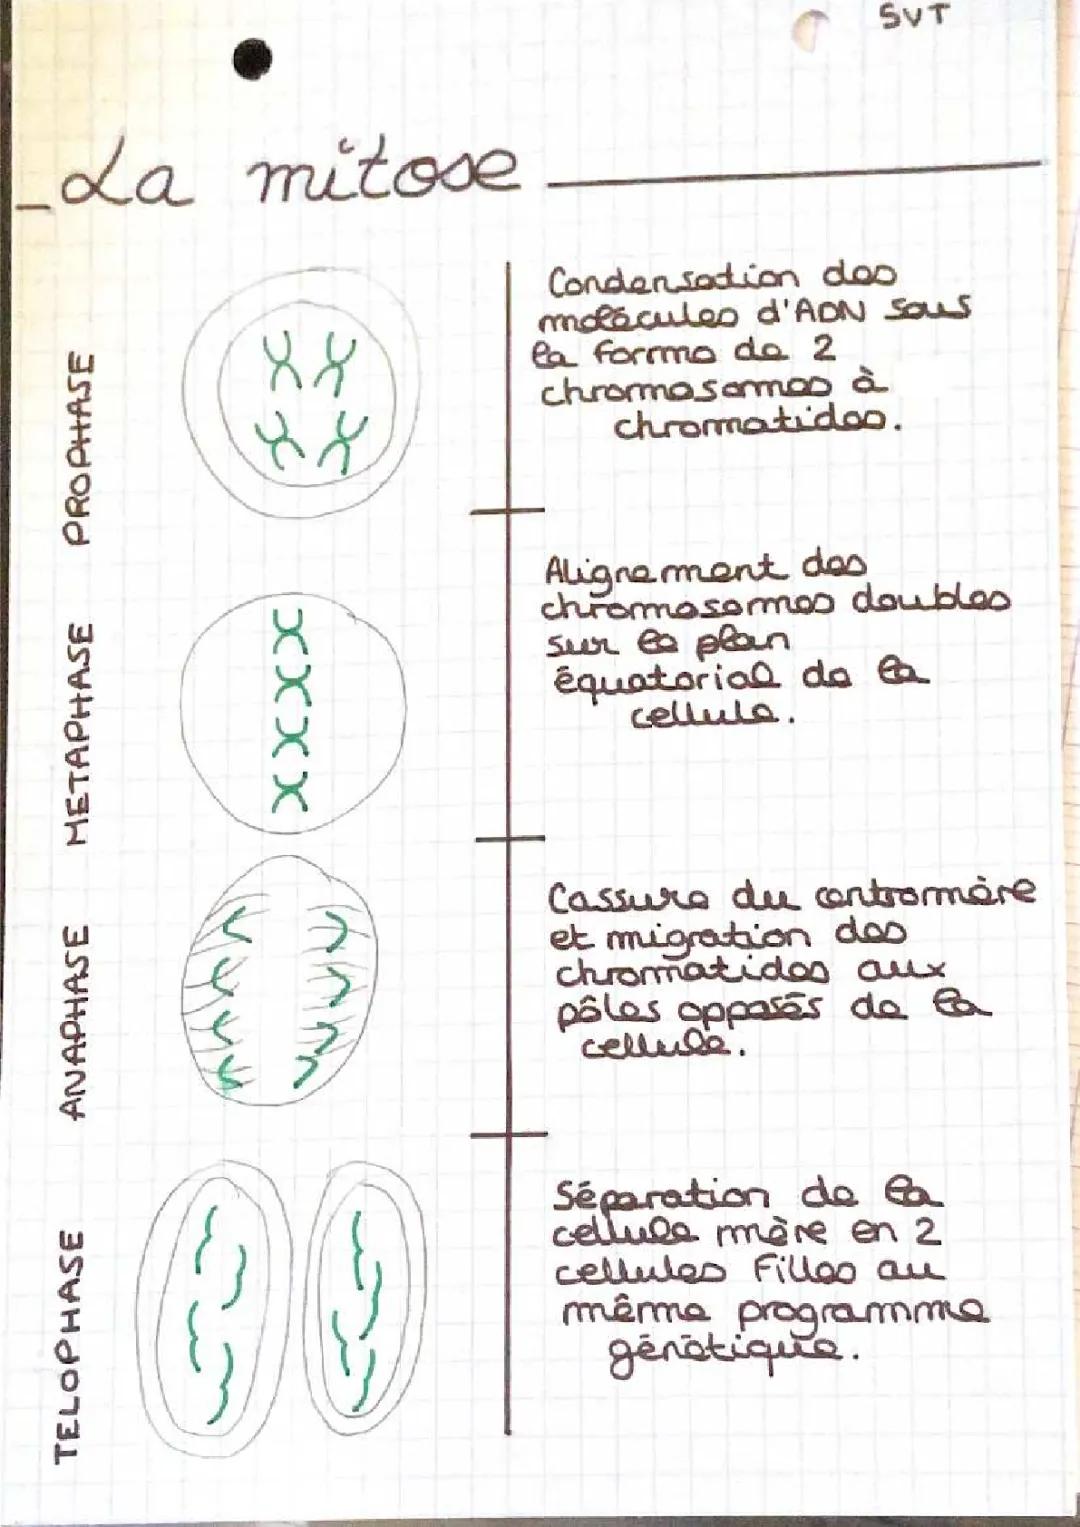 SVT
La mitose
PROPHASE
Condensation des
molécules d'ADN sous
la forme de 2
chromosomes à
chromatides.
METAPHASE
Alignement des
chromosomes doubles
sur le plan
équatorial de la
cellule.
ANAPHASE
Cassure du centromère
et migration des
chromatides aux
pôles opposés de la
cellule.
TELOPHASE
Séparation de la
cellule mère en 2
cellules filles au
même programme
génétique.